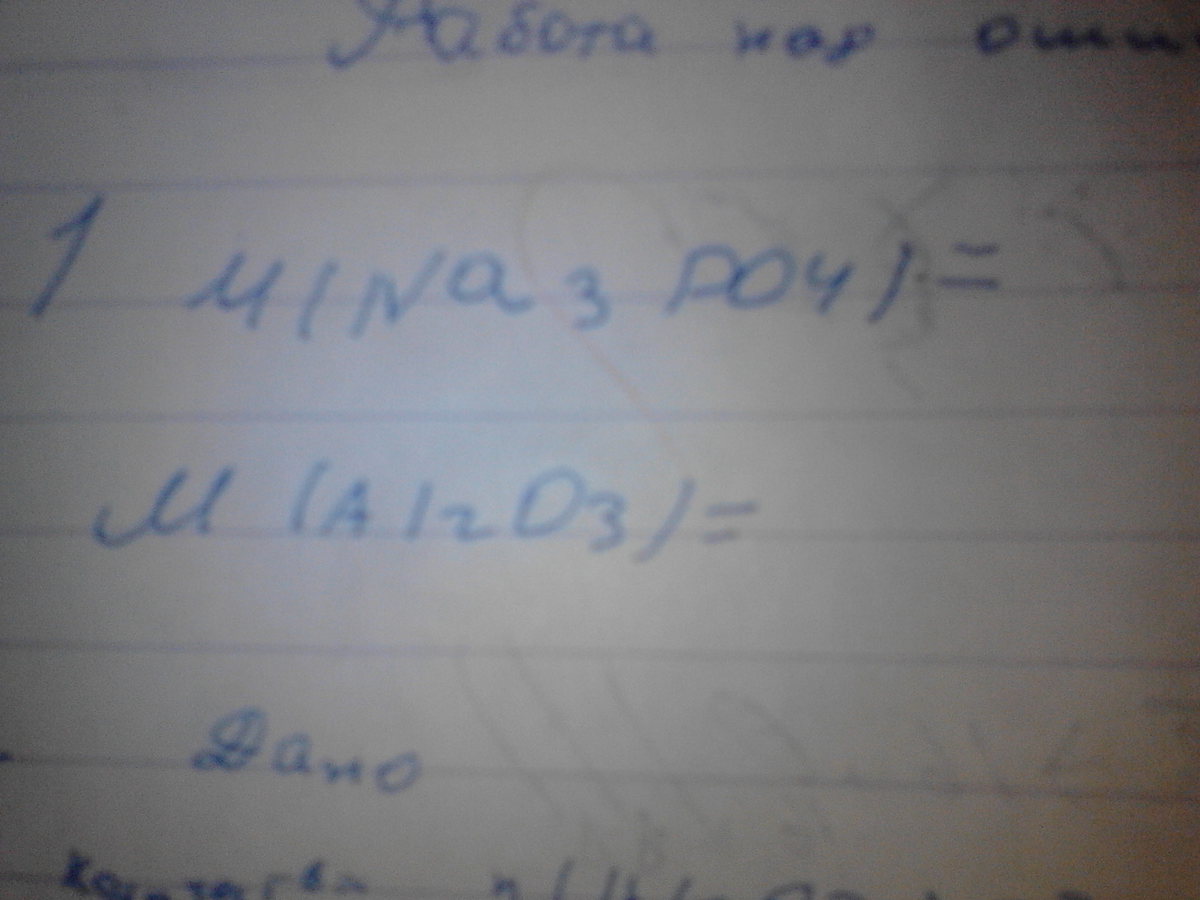 Работа над
1 M(Na3PO4)=
M(Al2O3)=
Дано